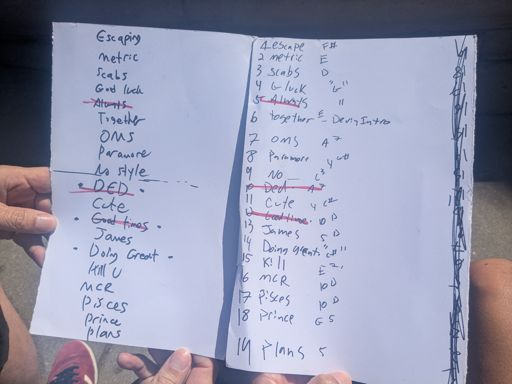 Escaping
metric
Scabs
God luck
Always
Together
OMS
Paramore
No style
DED
Cute
Good times
James
Doing Great
Kill U
MCR
Pisces
prince
plans
1 escape F#
2 metric E
3 scabs D
4 G luck "G"
5 Always "
6 together E - Devin Intro
7 OMS A
8 Paramore 4 C#
9 No
10 Ded A
11 Cute 4 C#
12 Goodtime. 10 D
13 James 5 D
14 Doing great. "C#"
15 Kill E
16 MCR 10 D
17 Pisces 10 D
18 Prince G 5
19 Plans 5